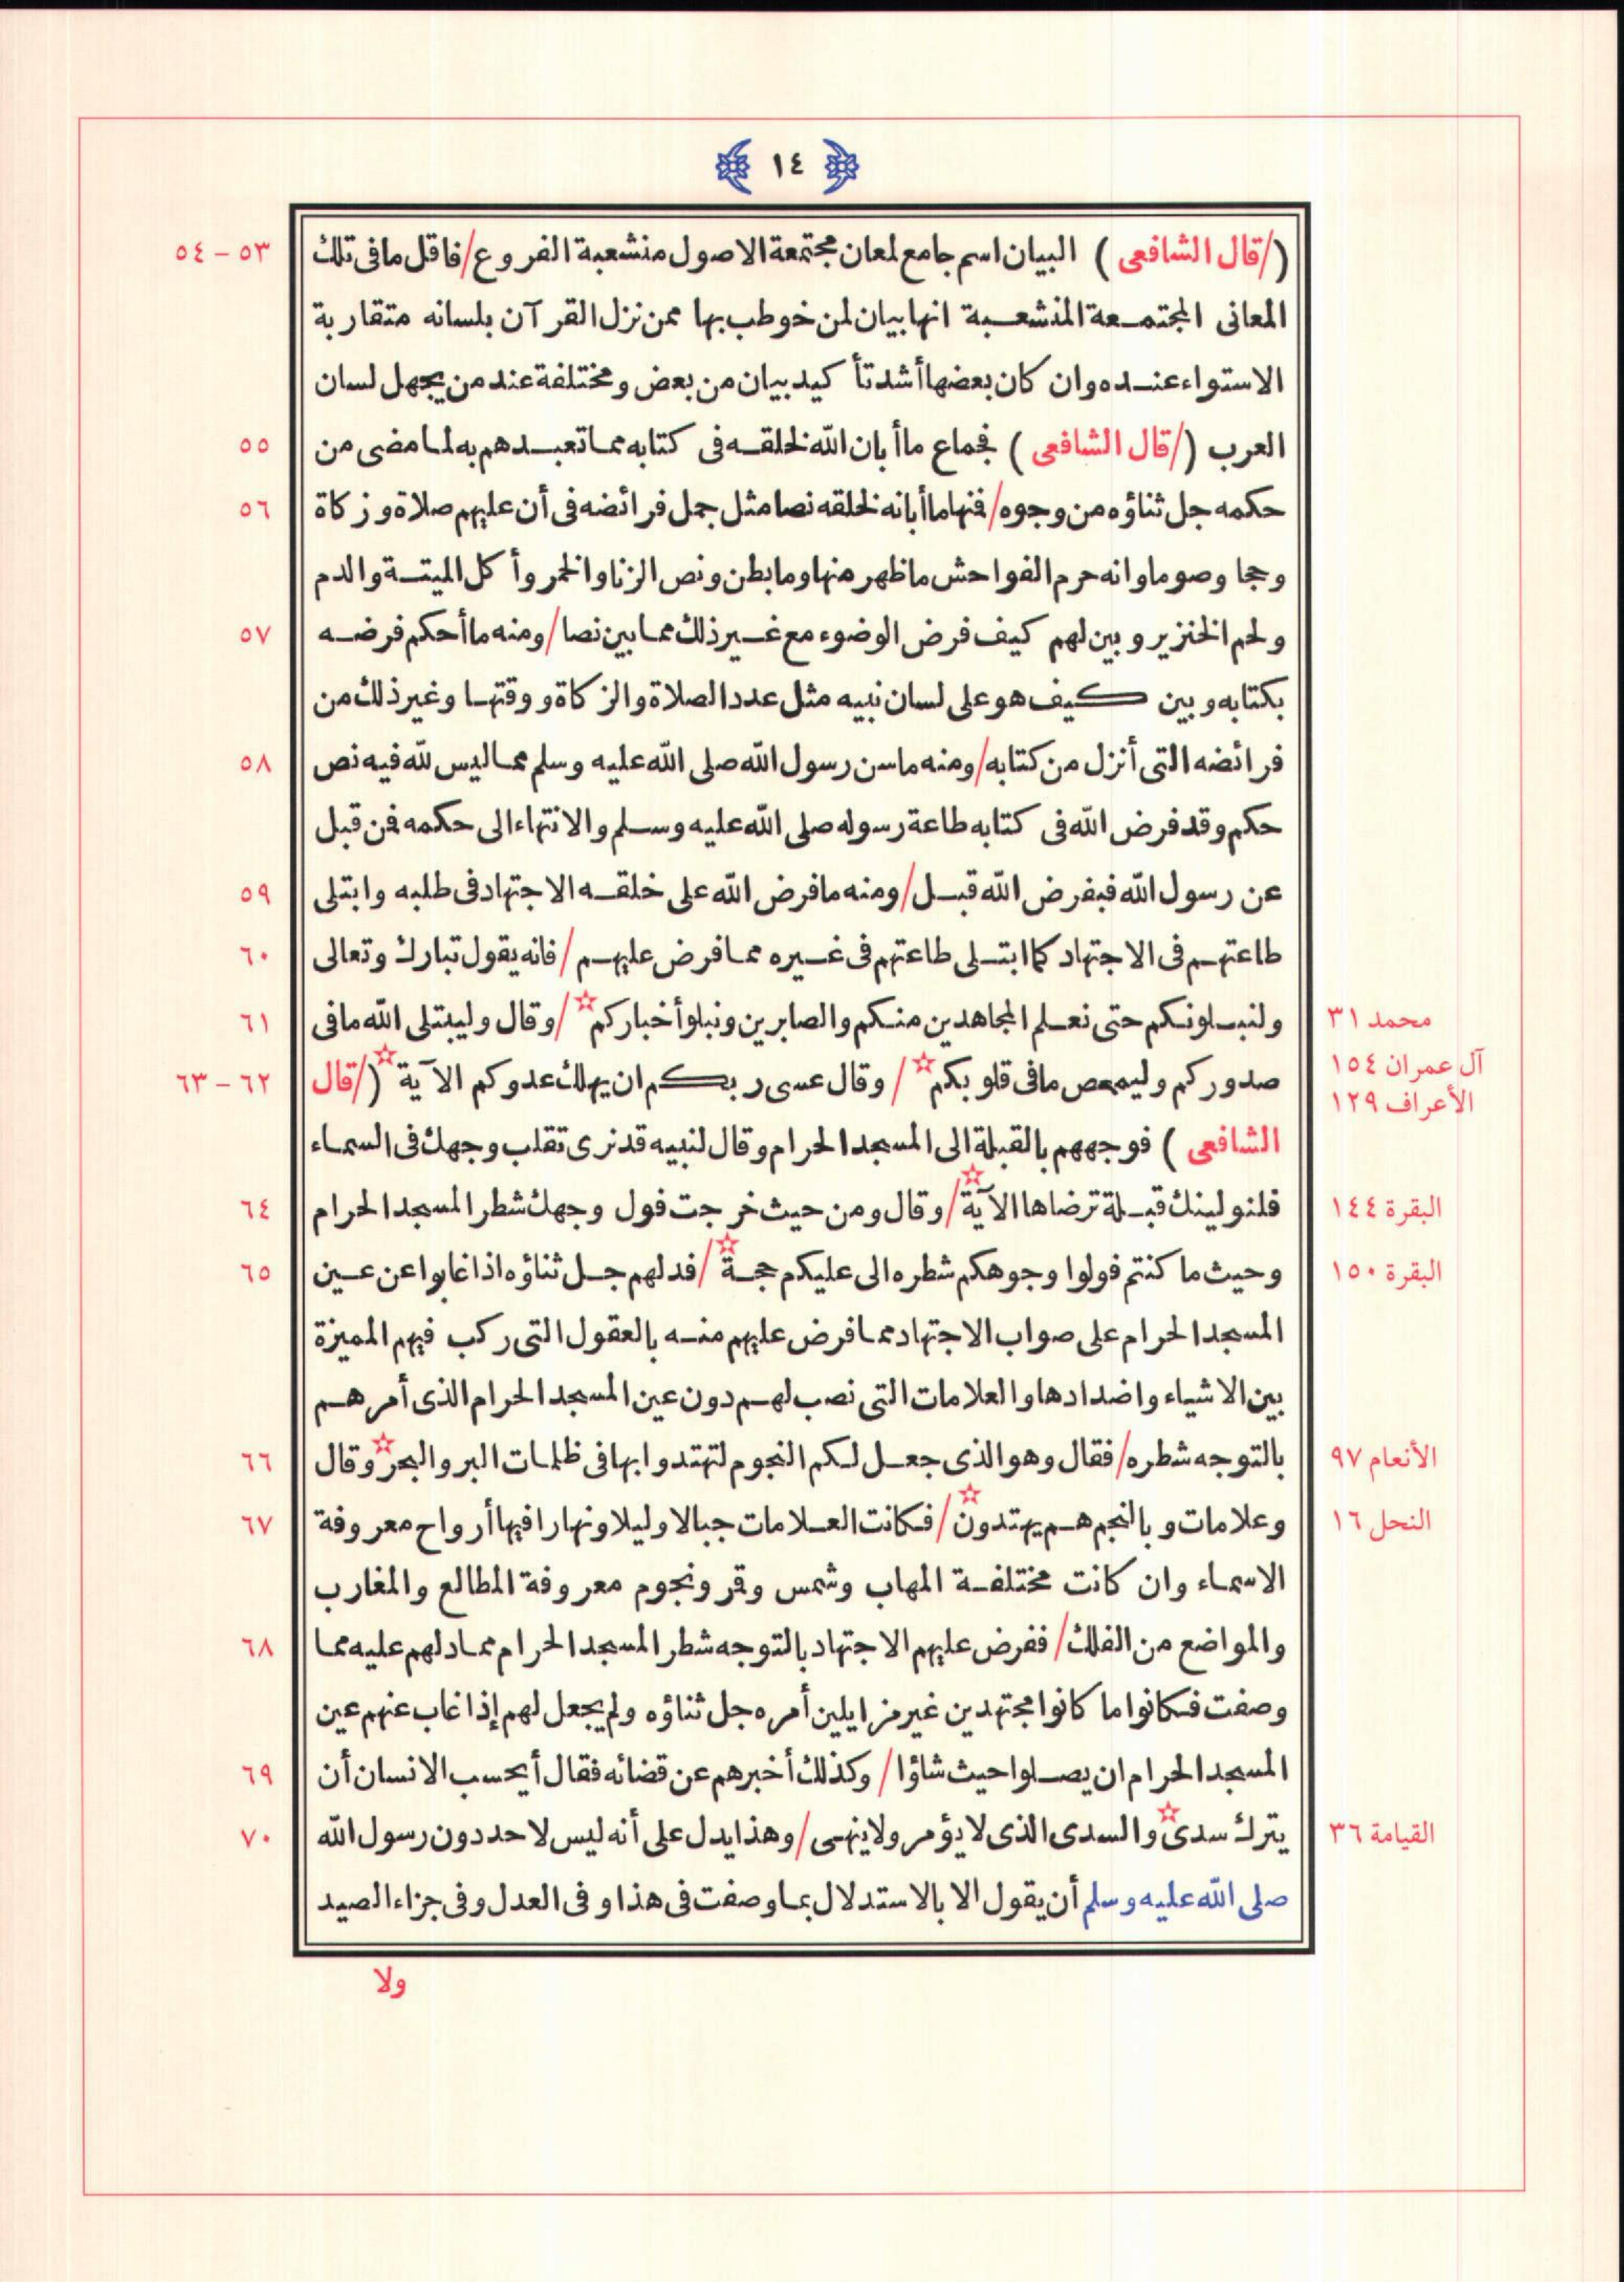 ١٤
(/قال الشافعى) البيان اسم جامع لمعان مجتمعة الاصول منشعبة الفروع/فاقل مافى تلك
٥٣ – ٥٤
المعانى المجتمعة المنشعبة انها بيان لمن خوطب بها ممن نزل القرآن بلسانه متقاربة
الاستواء عنده وان كان بعضها أشد تأكيد بيان من بعض ومختلفة عند من يجهل لسان
العرب (/قال الشافعى) فجماع ما أبان الله لخلقه فى كتابه مما تعبدهم به لما مضى من
٥٥
حكمه جل ثناؤه من وجوه/فنها ما أبانه لخلقه نصا مثل جمل فرائضه فى أن عليهم صلاة وزكاة
٥٦
وحجا وصوما وانه حرم الفواحش ماظهر منها ومابطن ونص الزنا والخمر وأكل الميتة والدم
ولحم الخنزير وبين لهم كيف فرض الوضوء مع غير ذلك مما بين نصا/ومنه ما أحكم فرضه
٥٧
بكتابه وبين كيف هو على لسان نبيه مثل عدد الصلاة والزكاة ووقتها وغير ذلك من
فرائضه التى أنزل من كتابه/ومنه ماسن رسول الله صلى الله عليه وسلم مما ليس لله فيه نص
٥٨
حكم وقد فرض الله فى كتابه طاعة رسوله صلى الله عليه وسلم والانتهاء الى حكمه فمن قبل
عن رسول الله فبفرض الله قبل/ومنه مافرض الله على خلقه الاجتهاد فى طلبه وابتلى
٥٩
طاعتهم فى الاجتهاد كما ابتلى طاعتهم فى غيره مما فرض عليهم/فانه يقول تبارك وتعالى
٦٠
محمد ٣١
ولنبلونكم حتى نعلم المجاهدين منكم والصابرين ونبلو أخباركم☆/وقال وليبتلى الله مافى
٦١
آل عمران ١٥٤
صدوركم وليمحص مافى قلوبكم☆/وقال عسى ربكم ان يهلك عدوكم الآية☆(/قال
٦٢ – ٦٣
الأعراف ١٢٩
الشافعى) فوجههم بالقبلة الى المسجد الحرام وقال لنبيه قد نرى تقلب وجهك فى السماء
البقرة ١٤٤
فلنولينك قبلة ترضاها الآية☆/وقال ومن حيث خرجت فول وجهك شطر المسجد الحرام
٦٤
البقرة ١٥٠
وحيث ما كنتم فولوا وجوهكم شطره الى عليكم حجة☆/فدلهم جل ثناؤه اذا غابوا عن عين
٦٥
المسجد الحرام على صواب الاجتهاد مما فرض عليهم منه بالعقول التى ركب فيهم المميزة
بين الاشياء واضدادها والعلامات التى نصب لهم دون عين المسجد الحرام الذى أمرهم
الأنعام ٩٧
بالتوجه شطره/فقال وهو الذى جعل لكم النجوم لتهتدوا بها فى ظلمات البر والبحر☆وقال
٦٦
النحل ١٦
وعلامات وبالنجم هم يهتدون☆/فكانت العلامات جبالا وليلا ونهارا فيها أرواح معروفة
٦٧
الاسماء وان كانت مختلفة المهاب وشمس وقمر ونجوم معروفة المطالع والمغارب
والمواضع من الفلك/ففرض عليهم الاجتهاد بالتوجه شطر المسجد الحرام مما دلهم عليه مما
٦٨
وصفت فكانوا ما كانوا مجتهدين غير مزايلين أمره جل ثناؤه ولم يجعل لهم إذا غاب عنهم عين
المسجد الحرام ان يصلوا حيث شاؤا/وكذلك أخبرهم عن قضائه فقال أيحسب الانسان أن
٦٩
القيامة ٣٦
يترك سدى☆والسدى الذى لا يؤمر ولا ينهى/وهذا يدل على أنه ليس لاحد دون رسول الله
٧٠
صلى الله عليه وسلم أن يقول الا بالاستدلال بما وصفت فى هذا وفى العدل وفى جزاء الصيد
ولا